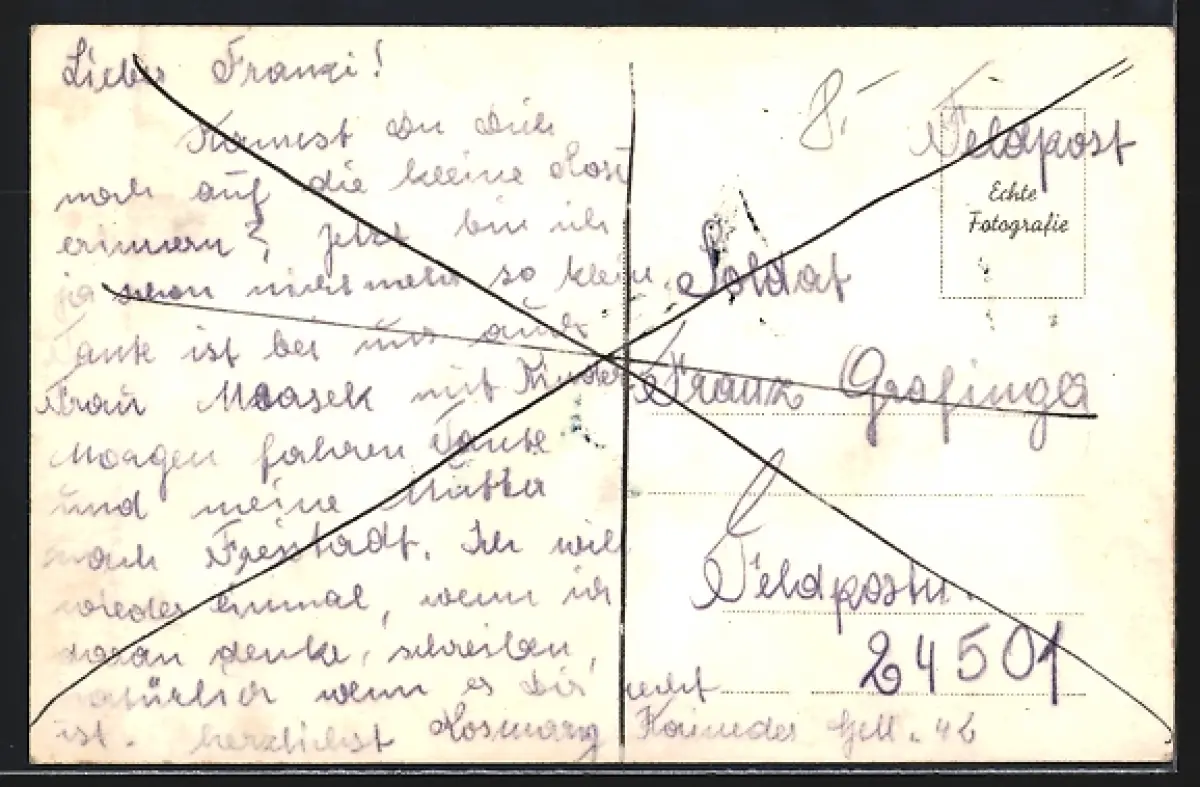 Lieber Franzi!
Kannst du dich
noch auf die kleine Rosi
erinnern?, jetzt bin ich
ja schon nicht mehr so klein.
Tante ist bei uns auch
Frau Maasek mit Kinder
Morgen fahren Tante
und meine Mutter
nach Freistadt. Ich will
wieder einmal, wenn ich
daran denke, schreiben,
natürlich wenn es dir recht
ist. herzlichst Rosmarg
8,-
Feldpost
Echte
Fotografie
Soldat
Franz Grafinger
Feldpostn.
24501